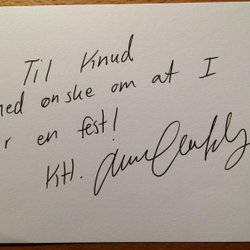 Til Knud
med ønske om at I
r en fest!
KH.